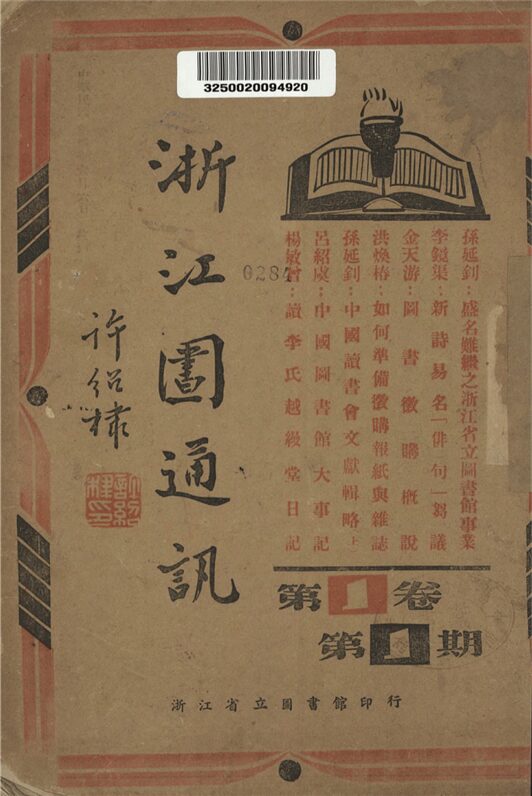 3250020094920
孫延釗：盛名難繼之浙江省立圖書館事業
李鏡渠：新詩易名「俳句」芻議
金天游：圖書徵購概說
洪煥椿：如何準備徵購報紙與雜誌
孫延釗：中國讀書會文獻輯略上
呂紹虞：中國圖書館大事記
楊敏曾：讀李氏越縵堂日記
0284
浙江圕通訊
許紹棣
許紹棣印
第1卷
第1期
浙江省立圖書館印行